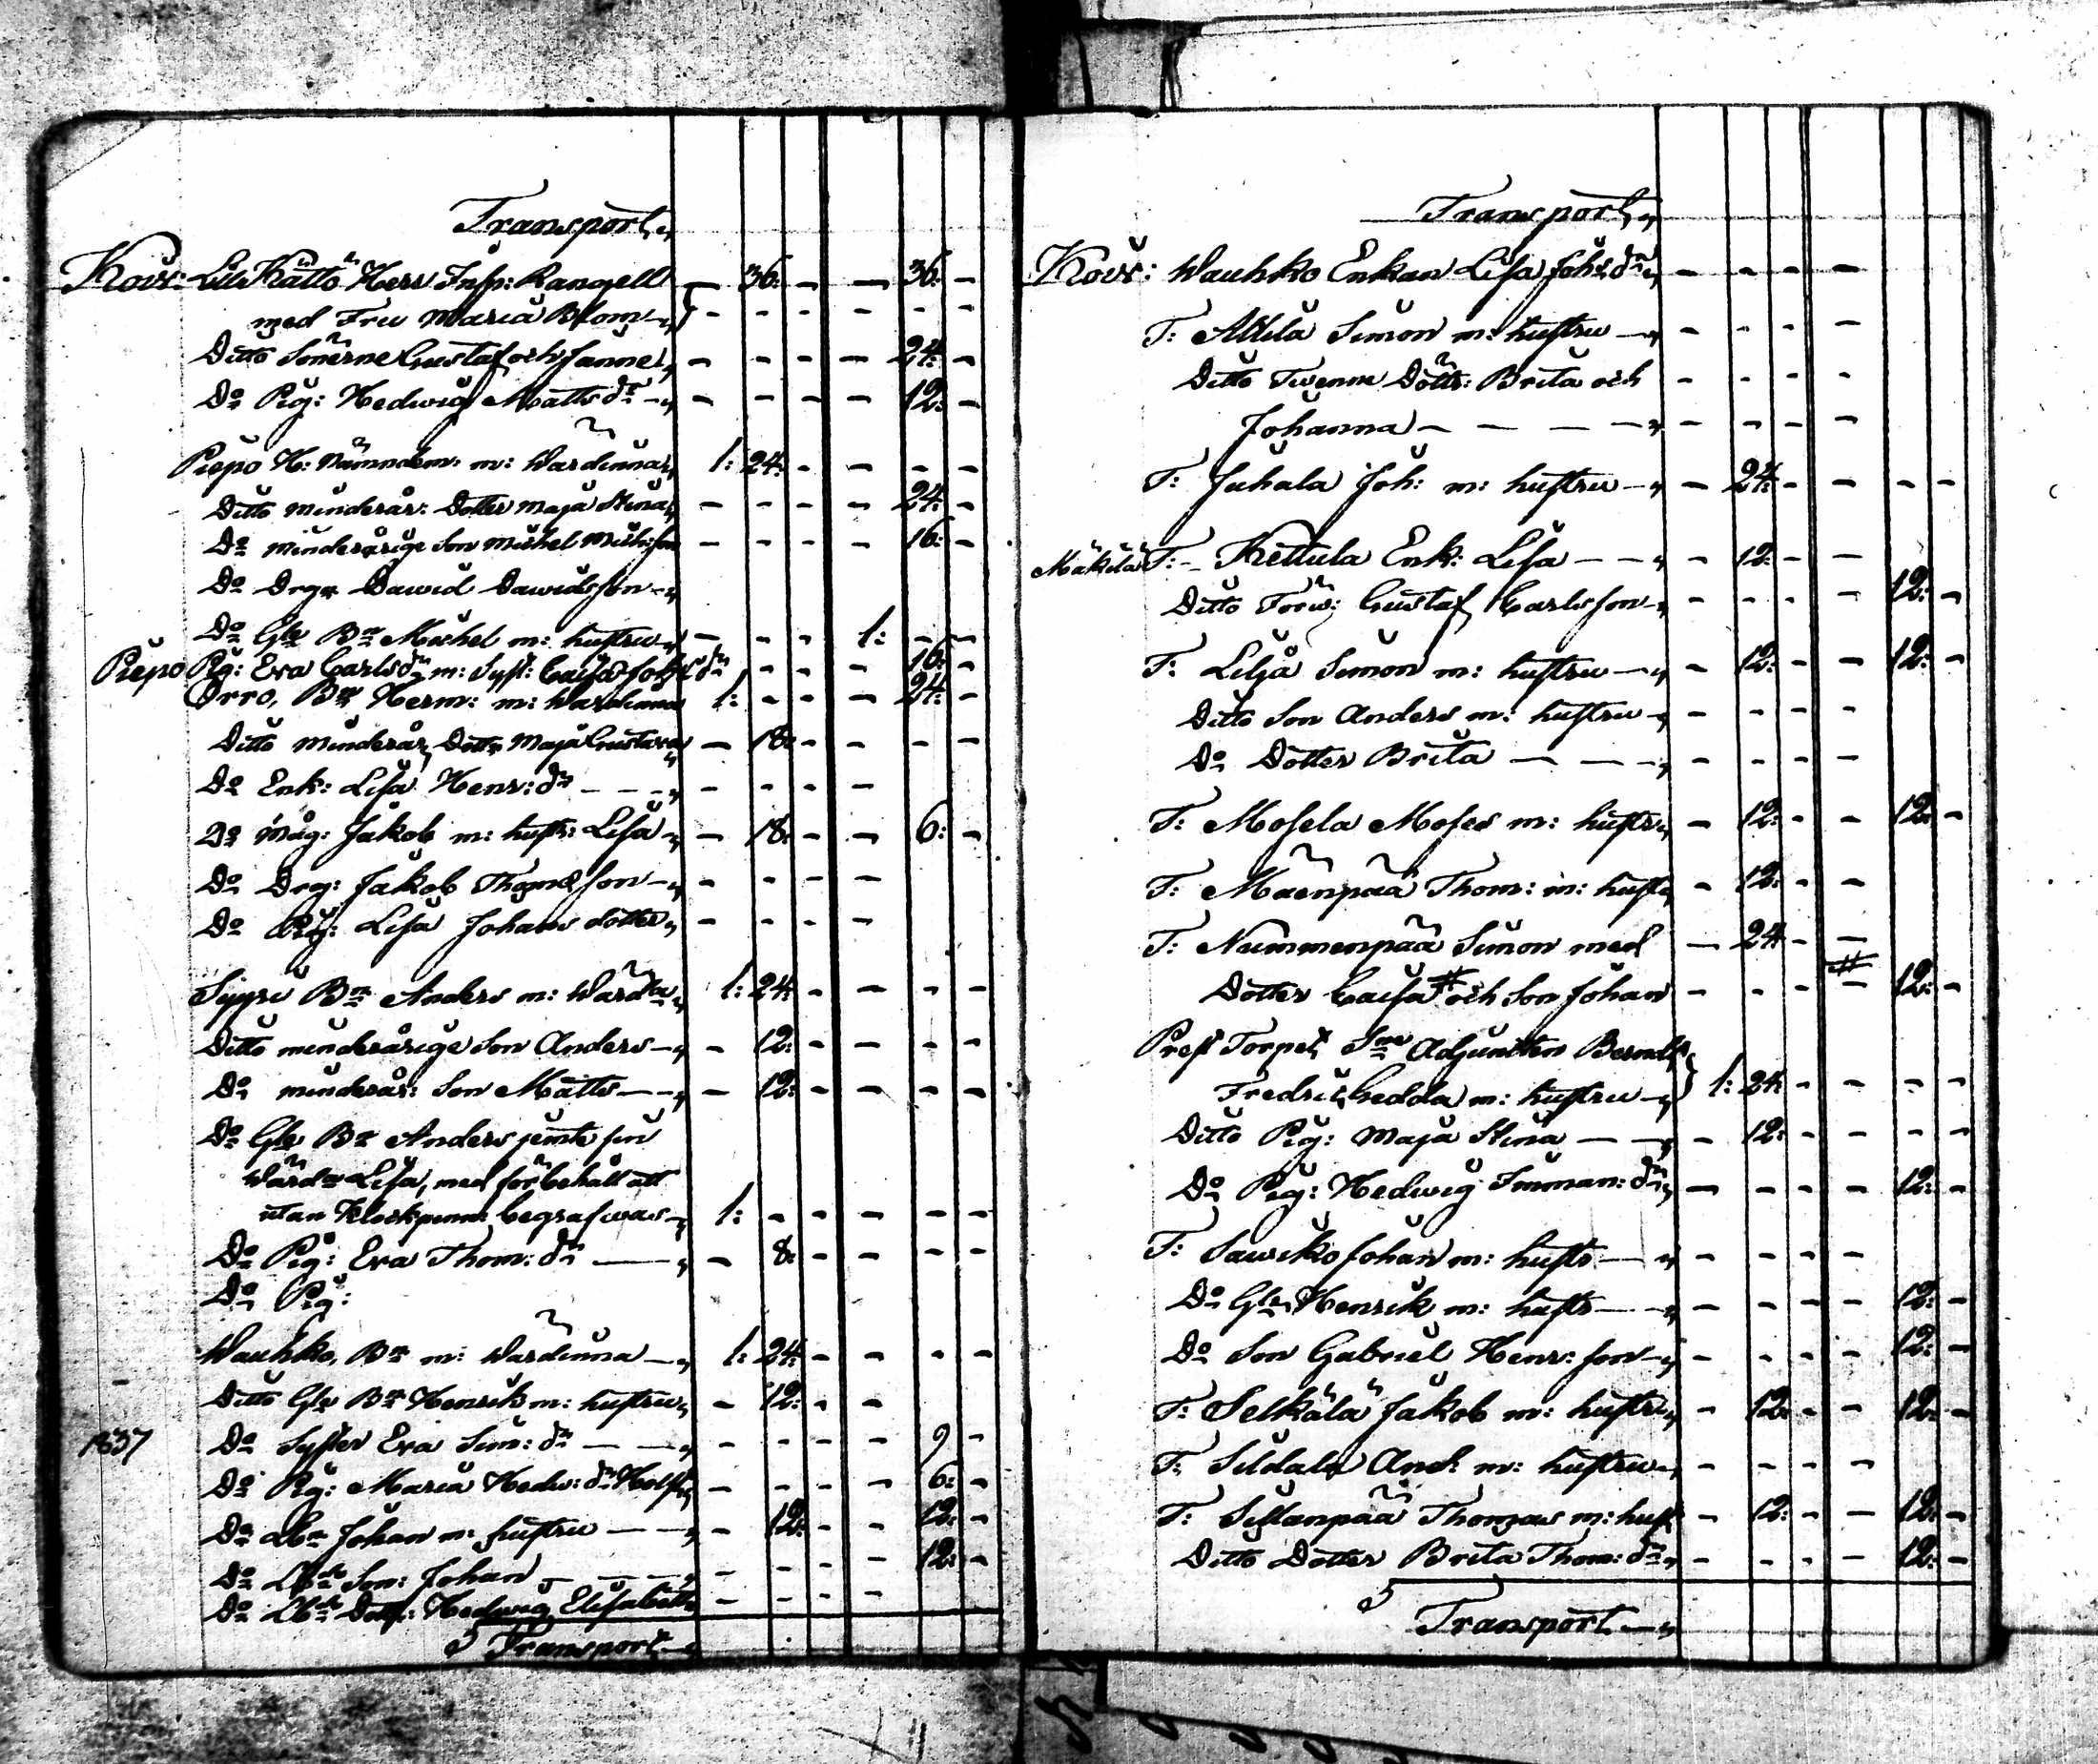 Transport
Kovr: Lill Kättö Herr Insp: Rangell — 36: — — 36: —
med Fru Maria Blom - - - - - -
Ditto Sönerne Gustaf och Janne - - - - 24: -
Do Pig: Hedwig Matts dr - - - - 12: -
Piepo H: Nämndem: m: Wärdinna 1: 24: - - - -
Ditto minderår: Dotter Maja Stina - - - - 24: -
Do minderårige Son Michel Mich:son - - - - 16: -
Do Drgr Dawid Dawidsson
Do Gle Bn Michel m: hustru - - - 1: - -
Piepo Pig: Eva Carlsdr m: Syst: Caisa Joh:dr - - - - 16:
Orro, Bn Herm: m: Wärdinna 1: - - - 24: -
Ditto minderår Dottr Maja Gustava - 18: - - - -
Do Enk: Lisa Henr: dr - - - -
Do Måg: Jakob m: hustr: Lisa - 18: - - 6: -
Do Drg: Jakob Thomasson - - - -
Do Pig: Lisa Johans dotter - - - -
Syyri Bn Anders m: Wärda 1: 24: - - - -
Ditto minderårige Son Anders - 12: - - - -
Do minderår: Son Matts - 12: - - - -
Do Gle Bn Anders jemte sin
Wärda Lisa, med förbehåll att
utan Klockpenn: begrafwas 1: - - - - -
Do Pig: Eva Thom: dr - 8: - - - -
Do Pig:
Wauhko, Bn m: Wärdinna 1: 24: - - - -
Ditto Gle Bn Henrik m: hustru - 12: - -
1837 Do Syster Eva Sim: dr - - - - 9 -
Do Pig: Maria Hedw: dr - - - - 6: -
Do Johan m: hustru - 12: - - 12: -
Do Son: Johan - - - - 12: -
Do Dottr: Hedwig Elisabeth - - - -
Transport
Transport
Kovr: Wauhko Enkan Lisa Joh: dr - - - -
T: Attila Simon m: hustru - - - -
Ditto Twenne Döttr: Brita och - - - -
Johanna - - - -
T: Juhala Joh: m: hustru - 24: - - - -
Mäkilä T: Kettula Enk: Lisa - 12: - -
Ditto Gustaf Carlsson - - - - 12: -
T: Lilja Simon m: hustru - 12: - - 12: -
Ditto Son Anders m: hustru - - - -
Do Dotter Brita - - - -
T: Mosela Moses m: hustr - 12: - - 12: -
T: Mäenpää Thom: m: hust - 12: - -
T: Nummenpää Simon med - 24: - -
Dotter Caisa # och Son Johan - - - - 12: -
Prest Torpet Adjunkten Berndt
Fredric Hedda m: hustru 1: 24: - - - -
Ditto Pig: Maja Stina - 12: - - - -
Do Pig: Hedwig Imman: dr - - - - 12: -
T: Sawiko Johan m: hustr - - - - - -
Do Gle Henrik m: hustr - - - - 12: -
Do Son Gabriel Henr: son - - - - 12: -
T: Selkälä Jakob m: hustr - 12: - - 12: -
T: Sildala And: m: hustru - - - -
T: Sillanpää Thomas m: hust - 12: - - 12: -
Ditto Dotter Brita Thom: dr - - - - 12: -
Transport